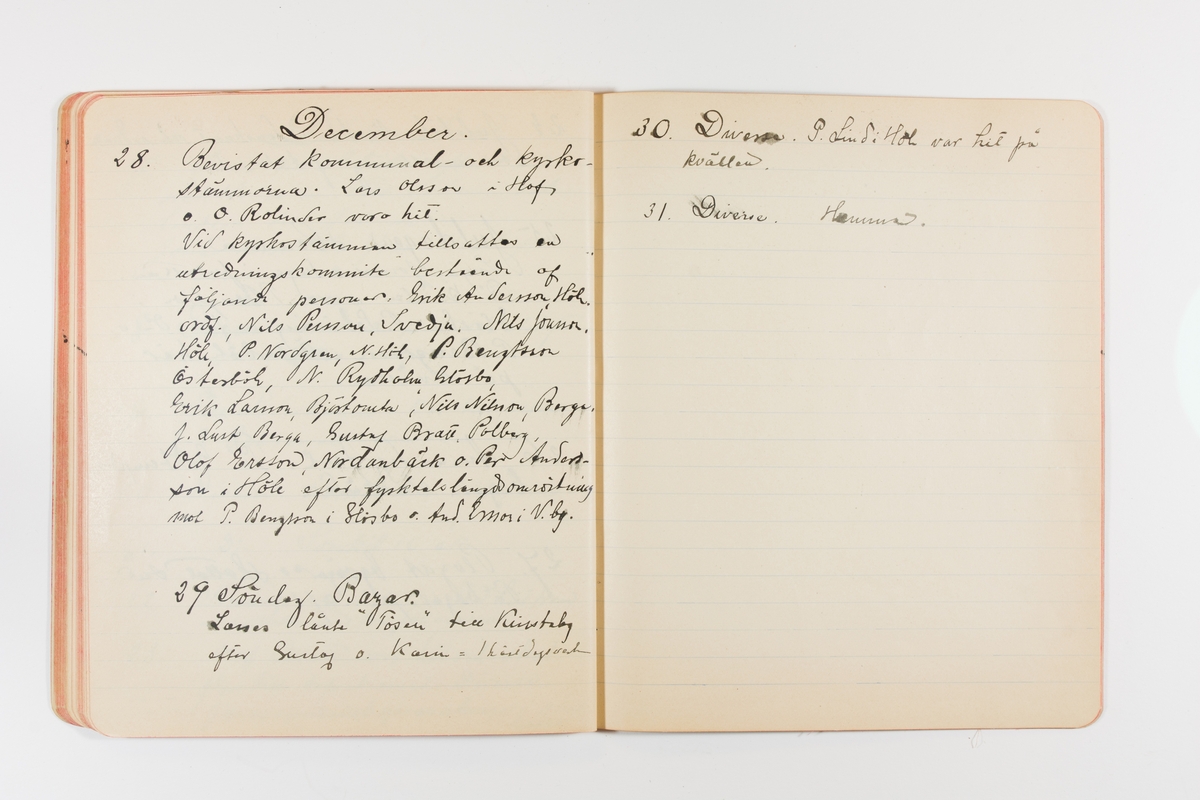 December.
28. Bevistat kommunal- och kyrko-
stämmorna. Lars Olsson i Hof,
o. O. Rolinder voro hit.
Vid kyrkostämman tillsattes en
utredningskommité bestående af
följande personer. Erik Andersson, Höle.
ordf., Nils Persson, Svedja. Nils Jonsson,
Höle, P. Nordgren, N. Höle, P. Bengtsson
Österböle, N. Rydholm, Glösbo,
Erik Larsson, Björtomta, Nils Nilsson, Berga,
J. Lust, Berga, Gustaf Bratt, Palberg,
Olof Ersson, Nordanbäck o. Per Anders-
son i Höle efter fyrktalslängdsomröstning
mot P. Bengtsson i Glösbo o. And. Ersson i V. by.
29 Söndag. Bazar.
Lasses lånte "Tösen" till Kinstaby
efter Gustaf o. Karin =
30. Diverse. P. Lind i Höle var hit på
kvällen.
31. Diverse. Hemma.